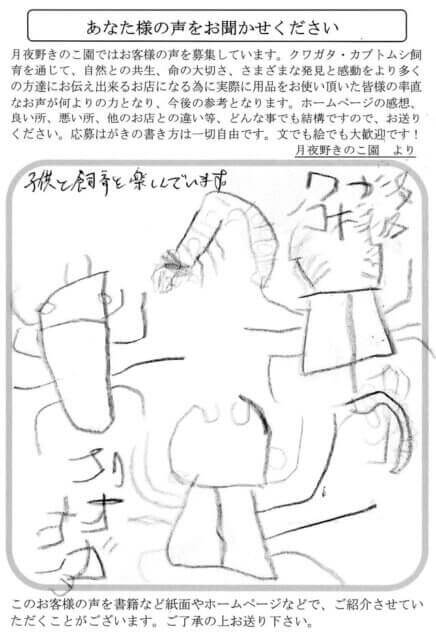 あなた様の声をお聞かせください
月夜野きのこ園ではお客様の声を募集しています。クワガタ・カブトムシ飼
育を通じて、自然との共生、命の大切さ、さまざまな発見と感動をより多く
の方達にお伝え出来るお店になる為に実際に用品をお使い頂いた皆様の率直
なお声が何よりの力となり、今後の参考となります。ホームページの感想、
良い所、悪い所、他のお店との違い等、どんな事でも結構ですので、お送り
ください。応募はがきの書き方は一切自由です。文でも絵でも大歓迎です！
月夜野きのこ園　より
子供と飼育を楽しんでいます
このお客様の声を書籍など紙面やホームページなどで、ご紹介させてい
ただくことがございます。ご了承の上お送り下さい。